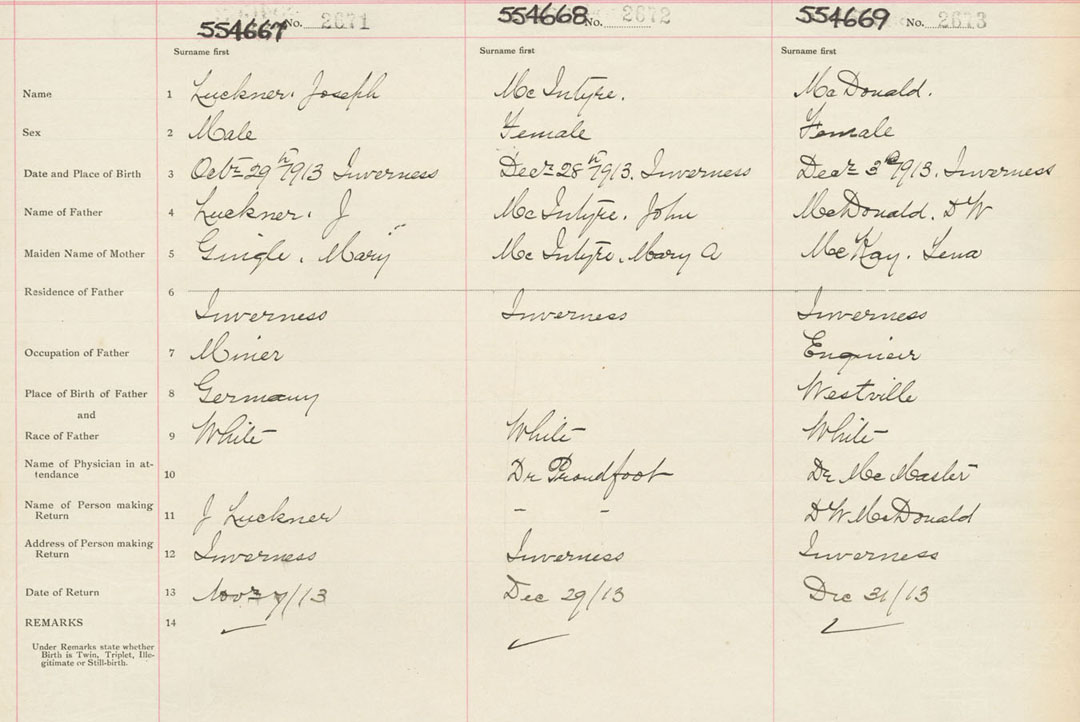 554667 No. 2671 554668 No. 2672 554669 No. 2673
Surname first Surname first Surname first
Name 1 Luckner. Joseph McIntyre. McDonald.
Sex 2 Male Female Female
Date and Place of Birth 3 Octr 29th 1913 Inverness Decr 28th 1913. Inverness Decr 3rd 1913. Inverness
Name of Father 4 Luckner. J McIntyre. John McDonald. D W
Maiden Name of Mother 5 Gingle. Mary McIntyre. Mary A McKay. Lena
Residence of Father 6
Inverness Inverness Inverness
Occupation of Father 7 Miner Engineer
Place of Birth of Father 8 Germany Westville
and
Race of Father 9 White White White
Name of Physician in at-
tendance 10 Dr Proudfoot Dr McMaster
Name of Person making
Return 11 J Luckner - - D W McDonald
Address of Person making
Return 12 Inverness Inverness Inverness
Date of Return 13 Novr 7/13 Dec 29/13 Dec 31/13
REMARKS 14
Under Remarks state whether
Birth is Twin, Triplet, Ille-
gitimate or Still-birth.